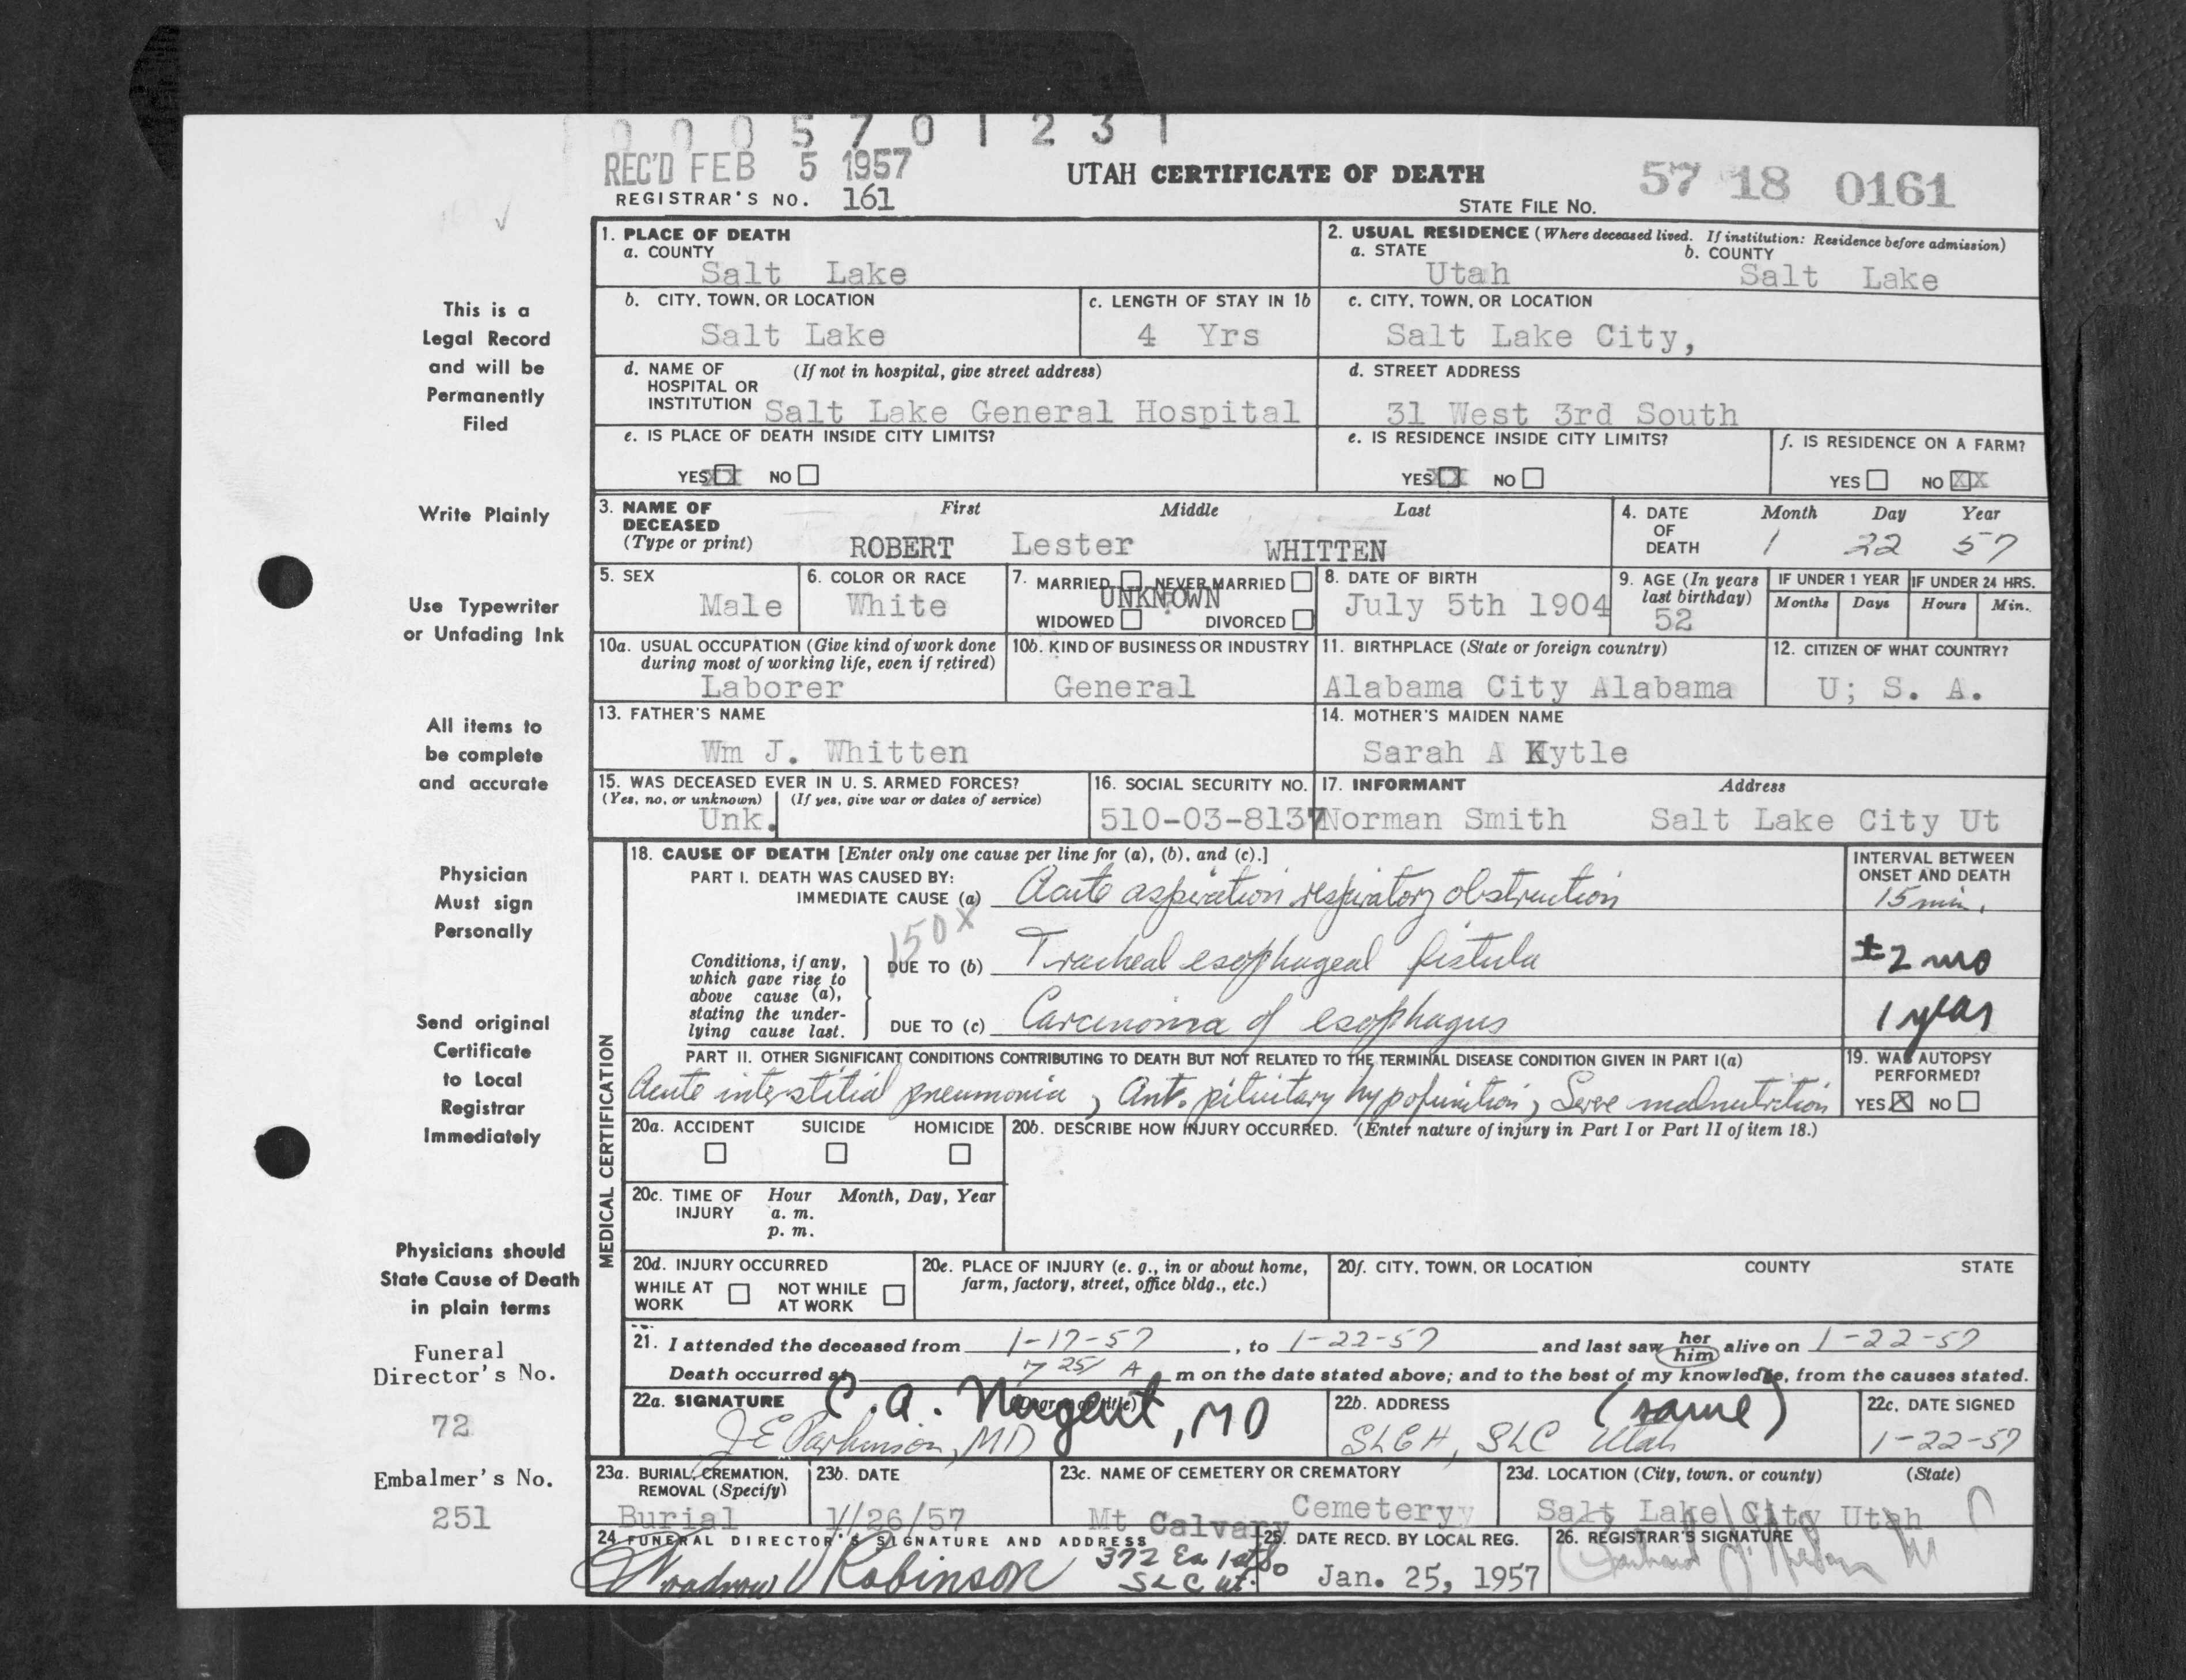 0 0 0 5 7 0 1 2 3 1
REC'D FEB 5 1957
UTAH CERTIFICATE OF DEATH
57 18 0161
REGISTRAR'S NO. 161
STATE FILE NO.
This is a
Legal Record
and will be
Permanently
Filed
Write Plainly
Use Typewriter
or Unfading Ink
All items to
be complete
and accurate
Physician
Must sign
Personally
Send original
Certificate
to Local
Registrar
Immediately
Physicians should
State Cause of Death
in plain terms
Funeral
Director's No.
72
Embalmer's No.
251
1. PLACE OF DEATH
a. COUNTY
Salt Lake
2. USUAL RESIDENCE (Where deceased lived. If institution: Residence before admission)
a. STATE b. COUNTY
Utah Salt Lake
b. CITY, TOWN, OR LOCATION
Salt Lake
c. LENGTH OF STAY IN 1b
4 Yrs
c. CITY, TOWN, OR LOCATION
Salt Lake City,
d. NAME OF (If not in hospital, give street address)
HOSPITAL OR
INSTITUTION Salt Lake General Hospital
d. STREET ADDRESS
31 West 3rd South
e. IS PLACE OF DEATH INSIDE CITY LIMITS?
YES XX NO
e. IS RESIDENCE INSIDE CITY LIMITS?
YES XX NO
f. IS RESIDENCE ON A FARM?
YES NO XX
3. NAME OF First Middle Last
DECEASED
(Type or print) ROBERT Lester WHITTEN
4. DATE Month Day Year
OF
DEATH 1 22 57
5. SEX
Male
6. COLOR OR RACE
White
7. MARRIED NEVER MARRIED
UNKNOWN
WIDOWED DIVORCED
8. DATE OF BIRTH
July 5th 1904
9. AGE (In years
last birthday)
52
IF UNDER 1 YEAR IF UNDER 24 HRS.
Months Days Hours Min.
10a. USUAL OCCUPATION (Give kind of work done
during most of working life, even if retired)
Laborer
10b. KIND OF BUSINESS OR INDUSTRY
General
11. BIRTHPLACE (State or foreign country)
Alabama City Alabama
12. CITIZEN OF WHAT COUNTRY?
U; S. A.
13. FATHER'S NAME
Wm J. Whitten
14. MOTHER'S MAIDEN NAME
Sarah A Kytle
15. WAS DECEASED EVER IN U. S. ARMED FORCES?
(Yes, no, or unknown) (If yes, give war or dates of service)
Unk.
16. SOCIAL SECURITY NO.
510-03-8137
17. INFORMANT Address
Norman Smith Salt Lake City Ut
MEDICAL CERTIFICATION
18. CAUSE OF DEATH [Enter only one cause per line for (a), (b), and (c).]
PART I. DEATH WAS CAUSED BY:
IMMEDIATE CAUSE (a) Acute aspiration respiratory obstruction
INTERVAL BETWEEN
ONSET AND DEATH
15 min.
150 X
Conditions, if any,
which gave rise to
above cause (a),
stating the under-
lying cause last.
DUE TO (b) Tracheal esophageal fistula
±2 mo
DUE TO (c) Carcinoma of esophagus
1 year
PART II. OTHER SIGNIFICANT CONDITIONS CONTRIBUTING TO DEATH BUT NOT RELATED TO THE TERMINAL DISEASE CONDITION GIVEN IN PART I(a)
Acute interstitial pneumonia, Ant. pituitary hypofunction, Severe malnutrition
19. WAS AUTOPSY
PERFORMED?
YES X NO
20a. ACCIDENT SUICIDE HOMICIDE
20b. DESCRIBE HOW INJURY OCCURRED. (Enter nature of injury in Part I or Part II of item 18.)
20c. TIME OF Hour Month, Day, Year
INJURY a. m.
p. m.
20d. INJURY OCCURRED
WHILE AT NOT WHILE
WORK AT WORK
20e. PLACE OF INJURY (e. g., in or about home,
farm, factory, street, office bldg., etc.)
20f. CITY, TOWN, OR LOCATION COUNTY STATE
21. I attended the deceased from 1-17-57, to 1-22-57 and last saw her him alive on 1-22-57
Death occurred at 7 25/ A m on the date stated above; and to the best of my knowledge, from the causes stated.
22a. SIGNATURE (Degree or title)
C. A. Nugent, MD
J E Parkinson, MD
22b. ADDRESS (same)
SLGH, SLC Utah
22c. DATE SIGNED
1-22-57
23a. BURIAL, CREMATION,
REMOVAL (Specify)
Burial
23b. DATE
1/26/57
23c. NAME OF CEMETERY OR CREMATORY
Mt Calvary Cemeteryy
23d. LOCATION (City, town, or county) (State)
Salt Lake City Utah
24 FUNERAL DIRECTOR'S SIGNATURE AND ADDRESS
Woodrow V Robinson 372 Ea 1st So
SLC Ut.
25. DATE RECD. BY LOCAL REG.
Jan. 25, 1957
26. REGISTRAR'S SIGNATURE